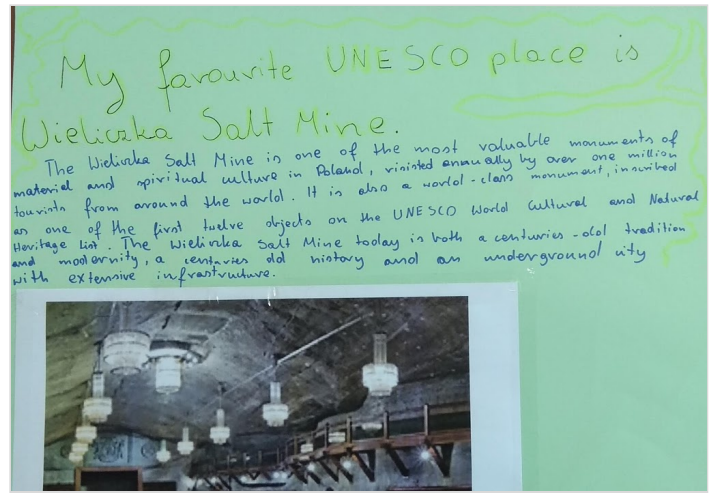 My favourite UNESCO place is
Wieliczka Salt Mine.
The Wieliczka Salt Mine is one of the most valuable monuments of
material and spiritual culture in Poland, visisted annually by over one million
tourists from around the world. It is also a world-class monument, inscribed
as one of the first twelve objects on the UNESCO World Cultural and Natural
Heritage List. The Wieliczka Salt Mine today is both a centuries-old tradition
and modernity, a centuries old history and an underground city
with extensive infrastructure.